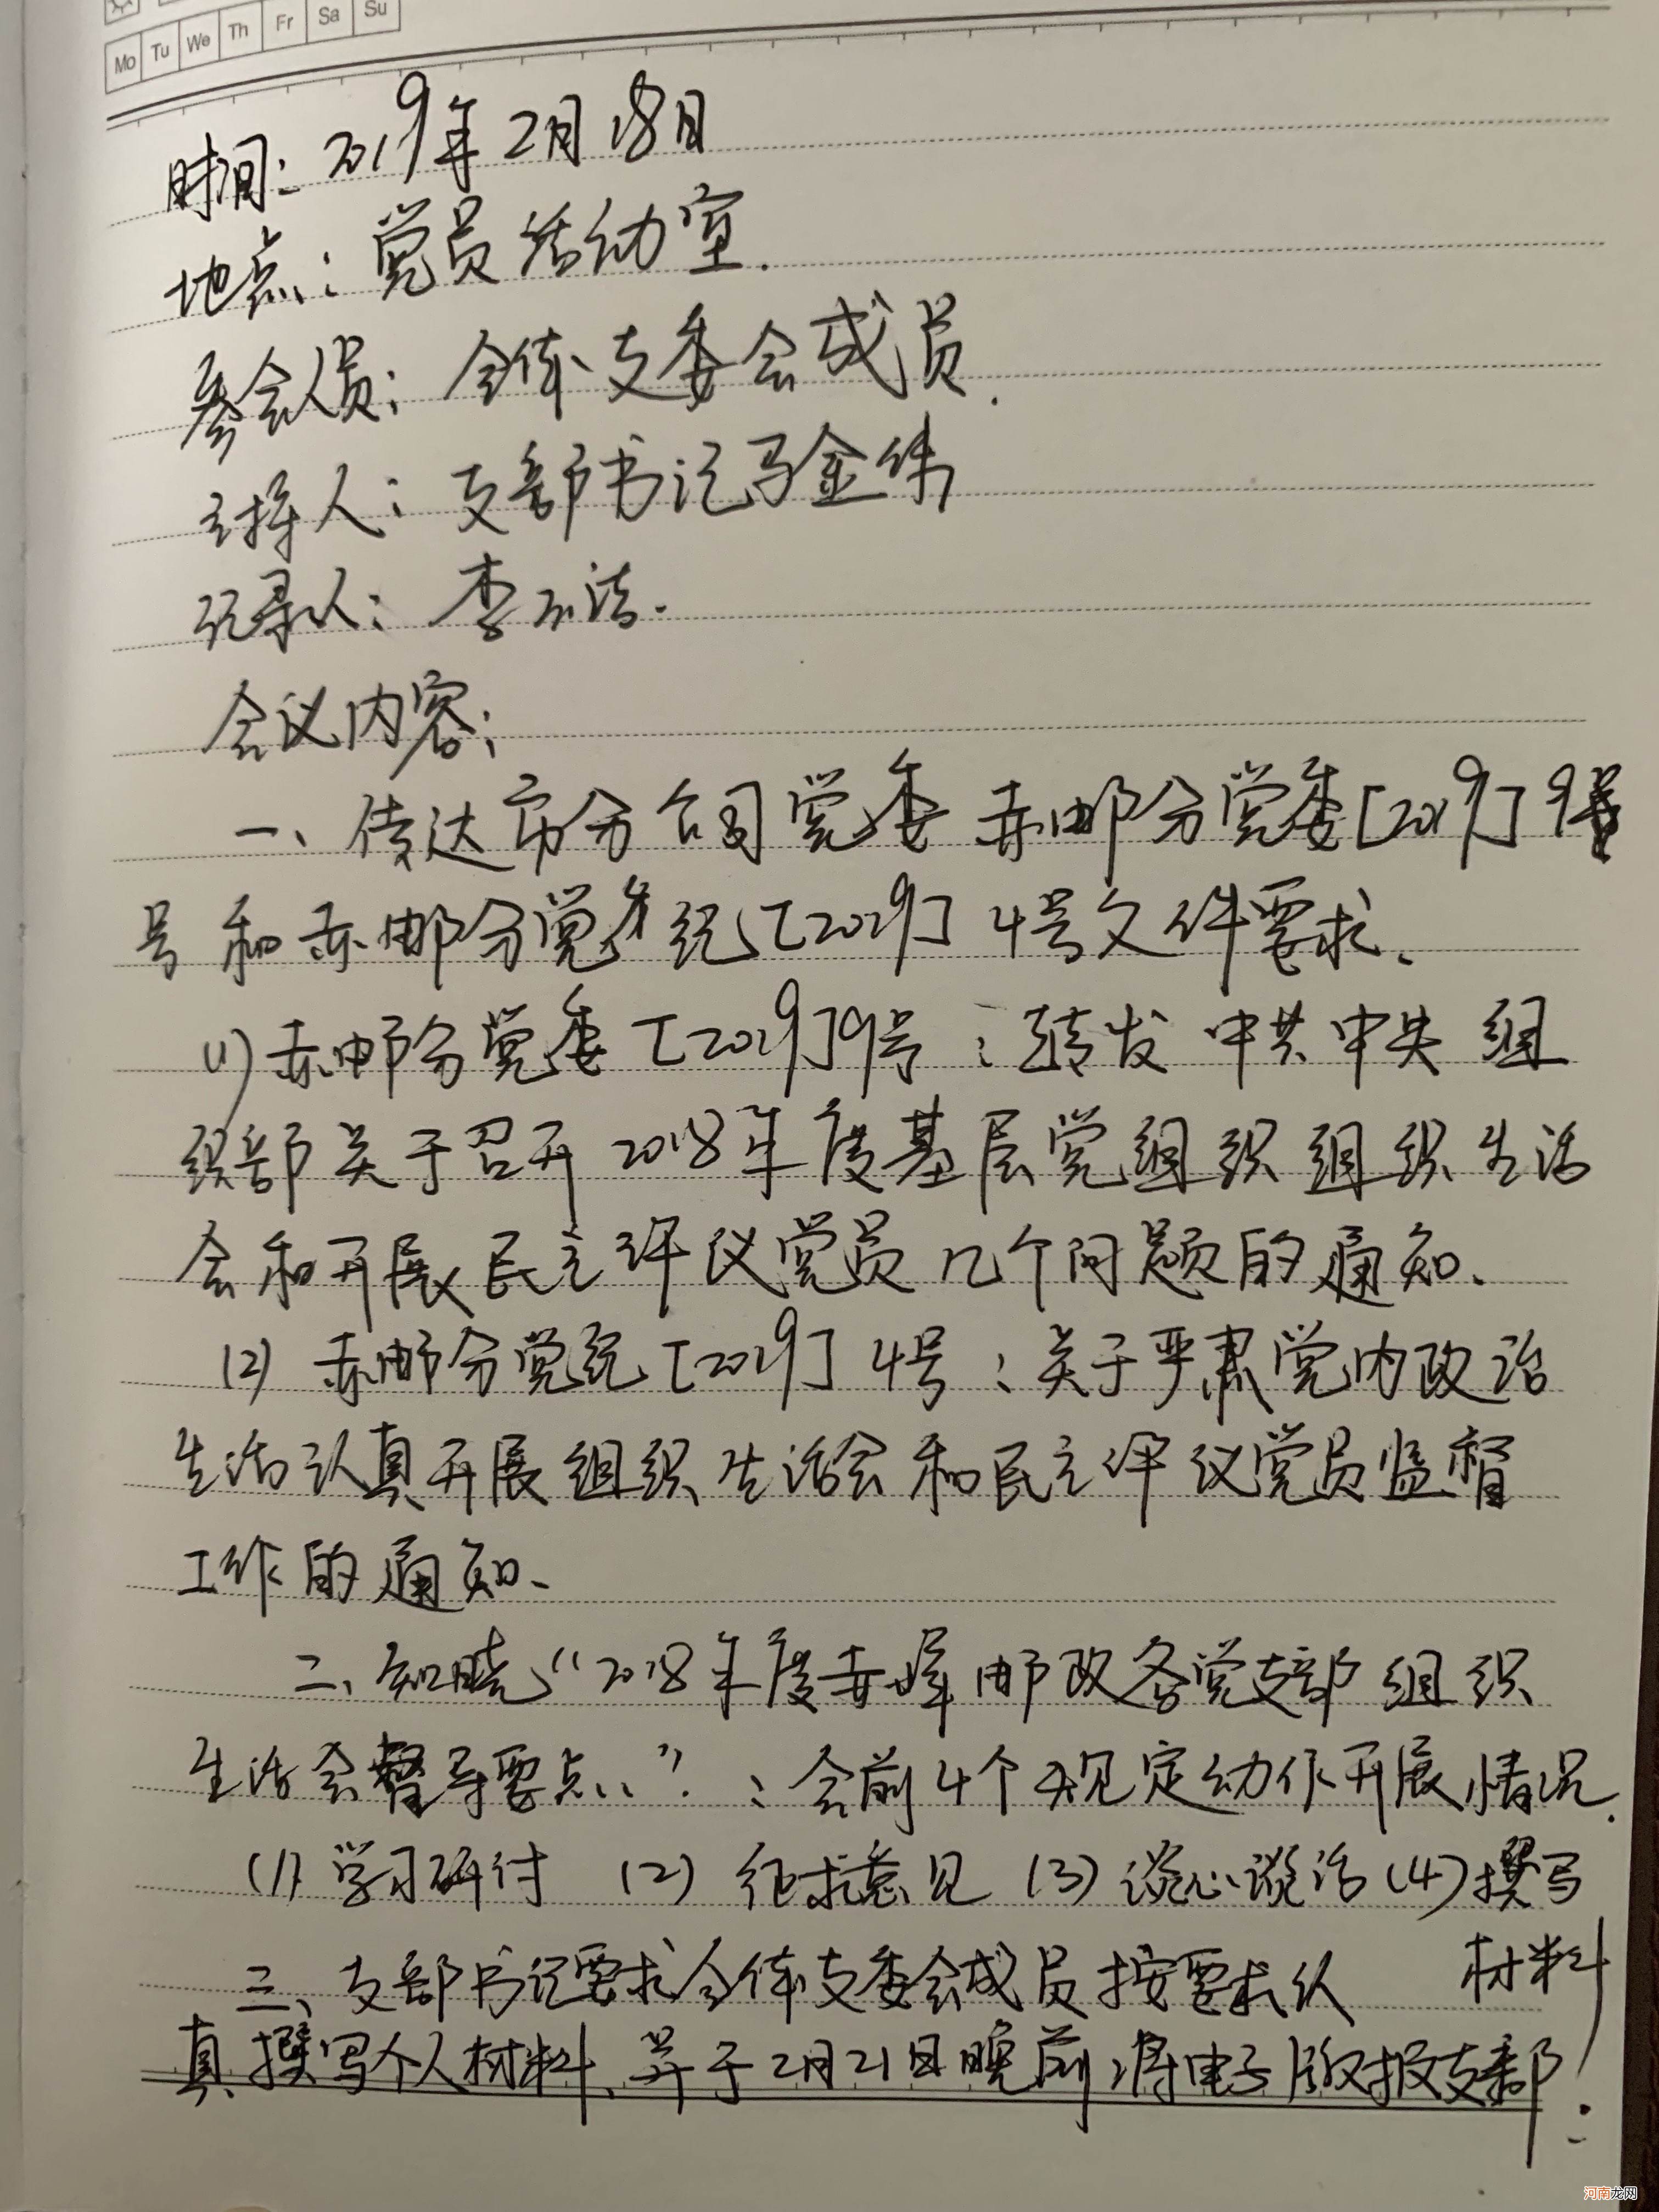 Mo Tu We Th Fr Sa Su
时间：2019年2月18日
地点：党员活动室.
参会人员：全体支委会成员.
主持人：支部书记马金伟
记录人：李
会议内容：
一、传达市分公司党委赤邮分党委[2019]9
号和赤邮分党纪[2019]4号文件要求.
(1)赤邮分党委[2019]9号：转发中共中央组
织部关于召开2018年度基层党组织组织生活
会和开展民主评议党员几个问题的通知.
(2)赤邮分党纪[2019]4号：关于严肃党内政治
生活认真开展组织生活会和民主评议党员监督
工作的通知、
二、知晓“2018年度赤峰邮政各党支部组织
生活会督导要点”：会前4个规定动作开展情况.
(1)学习研讨 (2)征求意见 (3)谈心谈话 (4)撰写
材料
三、支部书记要求全体支委会成员按要求认
真撰写个人材料、并于2月21日晚前，将电子版报支部！
河南龙网